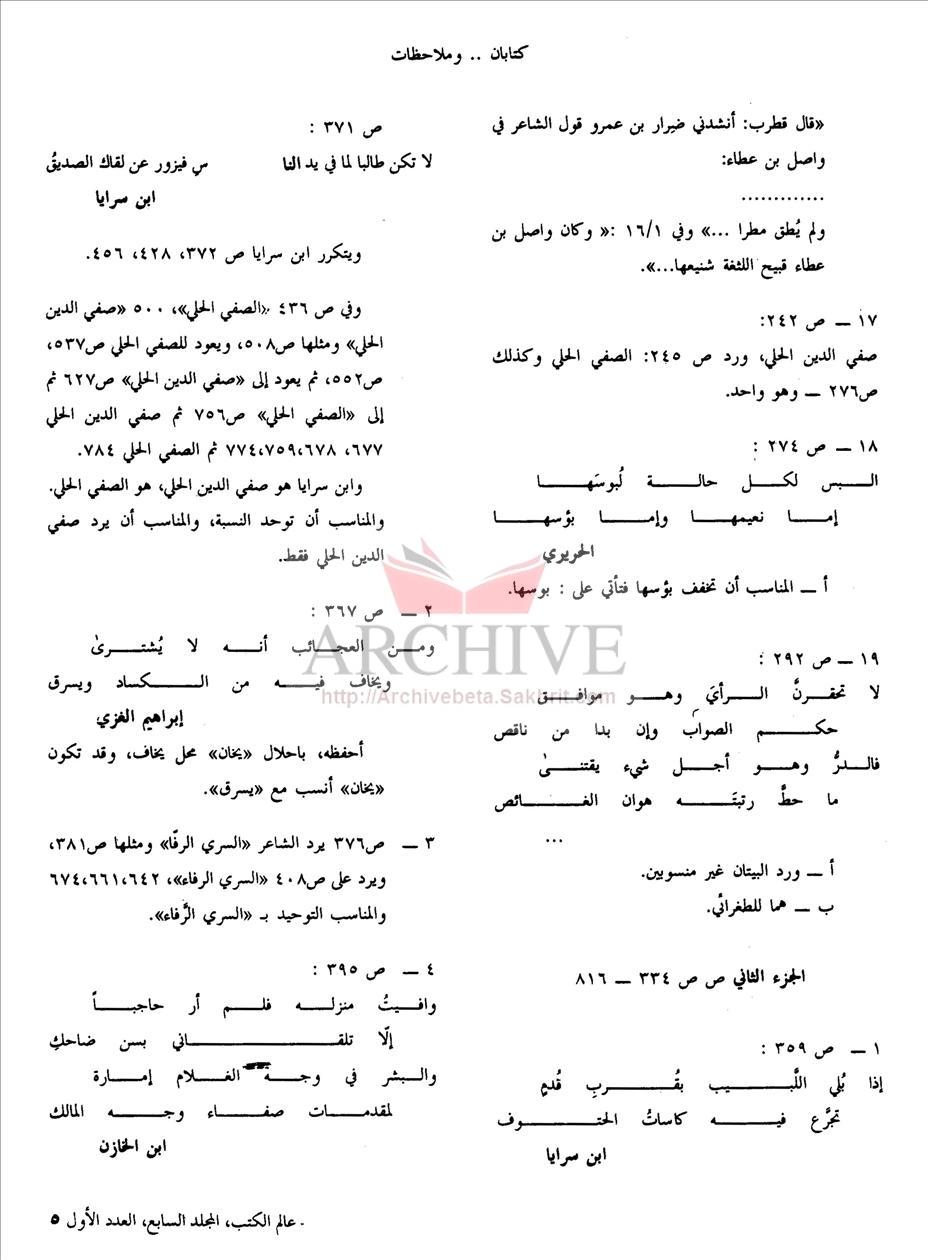 كتابان .. وملاحظات
«قال قطرب: أنشدني ضيرار بن عمرو قول الشاعر في
واصل بن عطاء:
.............
ولم يُطق مطرا ...» وفي ١٦/١ :« وكان واصل بن
عطاء قبيح اللثغة شنيعها...».
١٧ ــ ص ٢٤٢:
صفي الدين الحلي، ورد ص ٢٤٥: الصفي الحلي وكذلك
ص٢٧٦ ــ وهو واحد.
١٨ ــ ص ٢٧٤ :
البس لكل حالة لُبوسَها
إما نعيمها وإما بؤسها
الحريري
أ ــ المناسب أن تخفف بؤسها فتأتي على : بوسها.
١٩ ــ ص ٢٩٢ :
لا تحقرنَّ الرأيَ وهو موافق
حكم الصواب وإن بدا من ناقص
فالدرُّ وهو أجل شيء يقتنىٰ
ما حطَّ رتبتَه هوان الغائص
...
أ ــ ورد البيتان غير منسوبين.
ب ــ هما للطغرائي.
الجزء الثاني ص ص ٣٣٤ ــ ٨١٦
١ ــ ص ٣٥٩ :
إذا بُلي اللَّبيب بقُربِ قُدمٍ
تجرَّع فيه كاساتُ الحتوف
ابن سرايا
ص ٣٧١ :
لا تكن طالبا لما في يد النا س فيزور عن لقاك الصديقُ
ابن سرايا
ويتكرر ابن سرايا ص ٣٧٢، ٤٢٨، ٤٥٦.
وفي ص ٤٣٦ «الصفي الحلي»، ٥٠٠ «صفي الدين
الحلي» ومثلها ص٥٠٨، ويعود للصفي الحلي ص٥٣٧،
ص٥٥٢، ثم يعود إلى «صفي الدين الحلي» ص٦٢٧ ثم
إلى «الصفي الحلي» ص٧٥٦ ثم صفي الدين الحلي
٦٧٧، ٦٧٨،٧٥٩،٧٧٤ ثم الصفي الحلي ٧٨٤.
وابن سرايا هو صفي الدين الحلي، هو الصفي الحلي.
والمناسب أن توحد النسبة، والمناسب أن يرد صفي
الدين الحلي فقط.
٢ ــ ص ٣٦٧ :
ومن العجائب أنه لا يُشترىٰ
ويخاف فيه من الكساد ويسرق
إبراهيم الغزي
أحفظه، باحلال «يخان» محل يخاف، وقد تكون
«يخان» أنسب مع «يسرق».
٣ ــ ص٣٧٦ يرد الشاعر «السري الرفّا» ومثلها ص٣٨١،
ويرد على ص٤٠٨ «السري الرفاء»، ٦٤٢،٦٦١،٦٧٤
والمناسب التوحيد بـ «السري الرَّفاء».
٤ ــ ص ٣٩٥ :
وافيتُ منزله فلم أر حاجباً
إلّا تلقاني بسن ضاحكِ
والبشر في وجه الغلام إمارة
لمقدمات صفاء وجه المالك
ابن الخازن
ARCHIVE
http://Archivebeta.Sakhrit.com
عالم الكتب، المجلد السابع، العدد الأول ٥